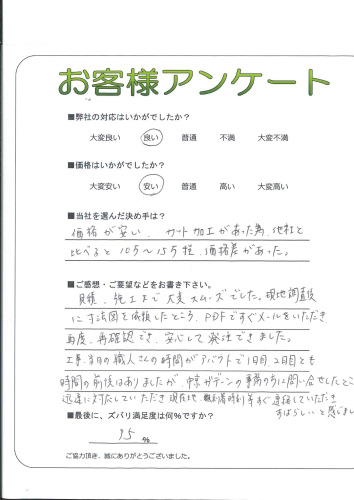 お客様アンケート
■弊社の対応はいかがでしたか？
大変良い 良い 普通 不満 大変不満
■価格はいかがでしたか？
大変安い 安い 普通 高い 大変高い
■当社を選んだ決め手は？
価格が安い、カット加工があった為、他社と
比べると10万〜15万程、価格差があった。
■ご感想・ご要望などをお書き下さい。
見積、施工まで大変スムーズでした。現地調査後
に寸法図を依頼したところ、PDFですぐメールをいただき
再度、再確認でき、安心して発注できました。
工事当日の職人さんの時間がアバウトで1日目、2日目とも
時間の前後はありましたが、中京ガーデンの事務の方に問い合せしたところ
迅速に対応していただき 現在地、到着時刻等すぐ連絡していただき
すばらしいと感じました
■最後に、ズバリ満足度は何％ですか？
95 %
ご協力頂き、誠にありがとうございました。